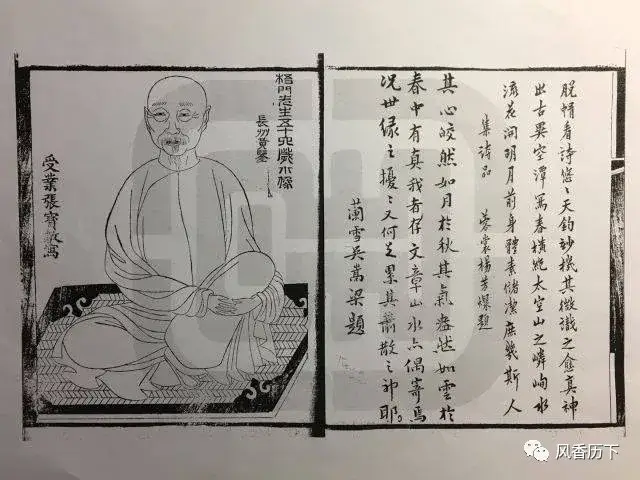 脱帽看詩悠〻天鈞妙機其微識之愈真神
出古異空潭瀉春橫絶太空山之嶙峋水
流花開明月前身體素儲潔庶幾斯人
集詩品 蓉裳楊芳燦題
其心皎然如月於秋其氣盎然如雲於
春中有真我者存文章山水亦偶寄焉
況世緣之擾〻又何足累其蕭散之神耶。
蘭雪吳嵩梁題
梧門先生五十六歲小像
長州黃
受業張寶敬寫
风香历下